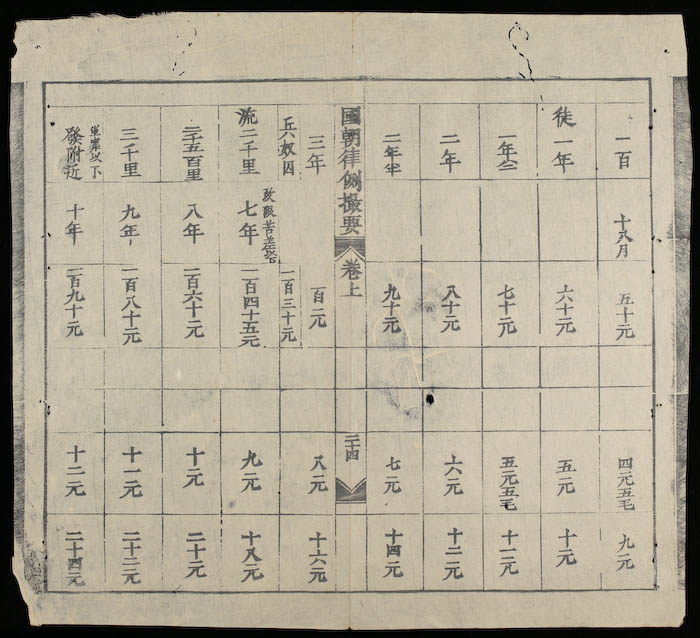 一百 十八月 五十元 四元五毛 九元
徒一年 六十元 五元 十元
一年 七十元 五元五毛 十一元
二年 八十元 六元 十二元
二年半 九十元 七元 十四元
國朝律例撮要 卷上 二十四
三年 百二元 八元 十六元
兵奴囚 一百三十元
流二千里 七年 一百四十五元 九元 十八元
二千五百里 八年 一百六十元 十元 二十元
三千里 九年 一百八十元 十一元 二十二元
軍罪以下
發附近 十年 二百九十元 十二元 二十四元